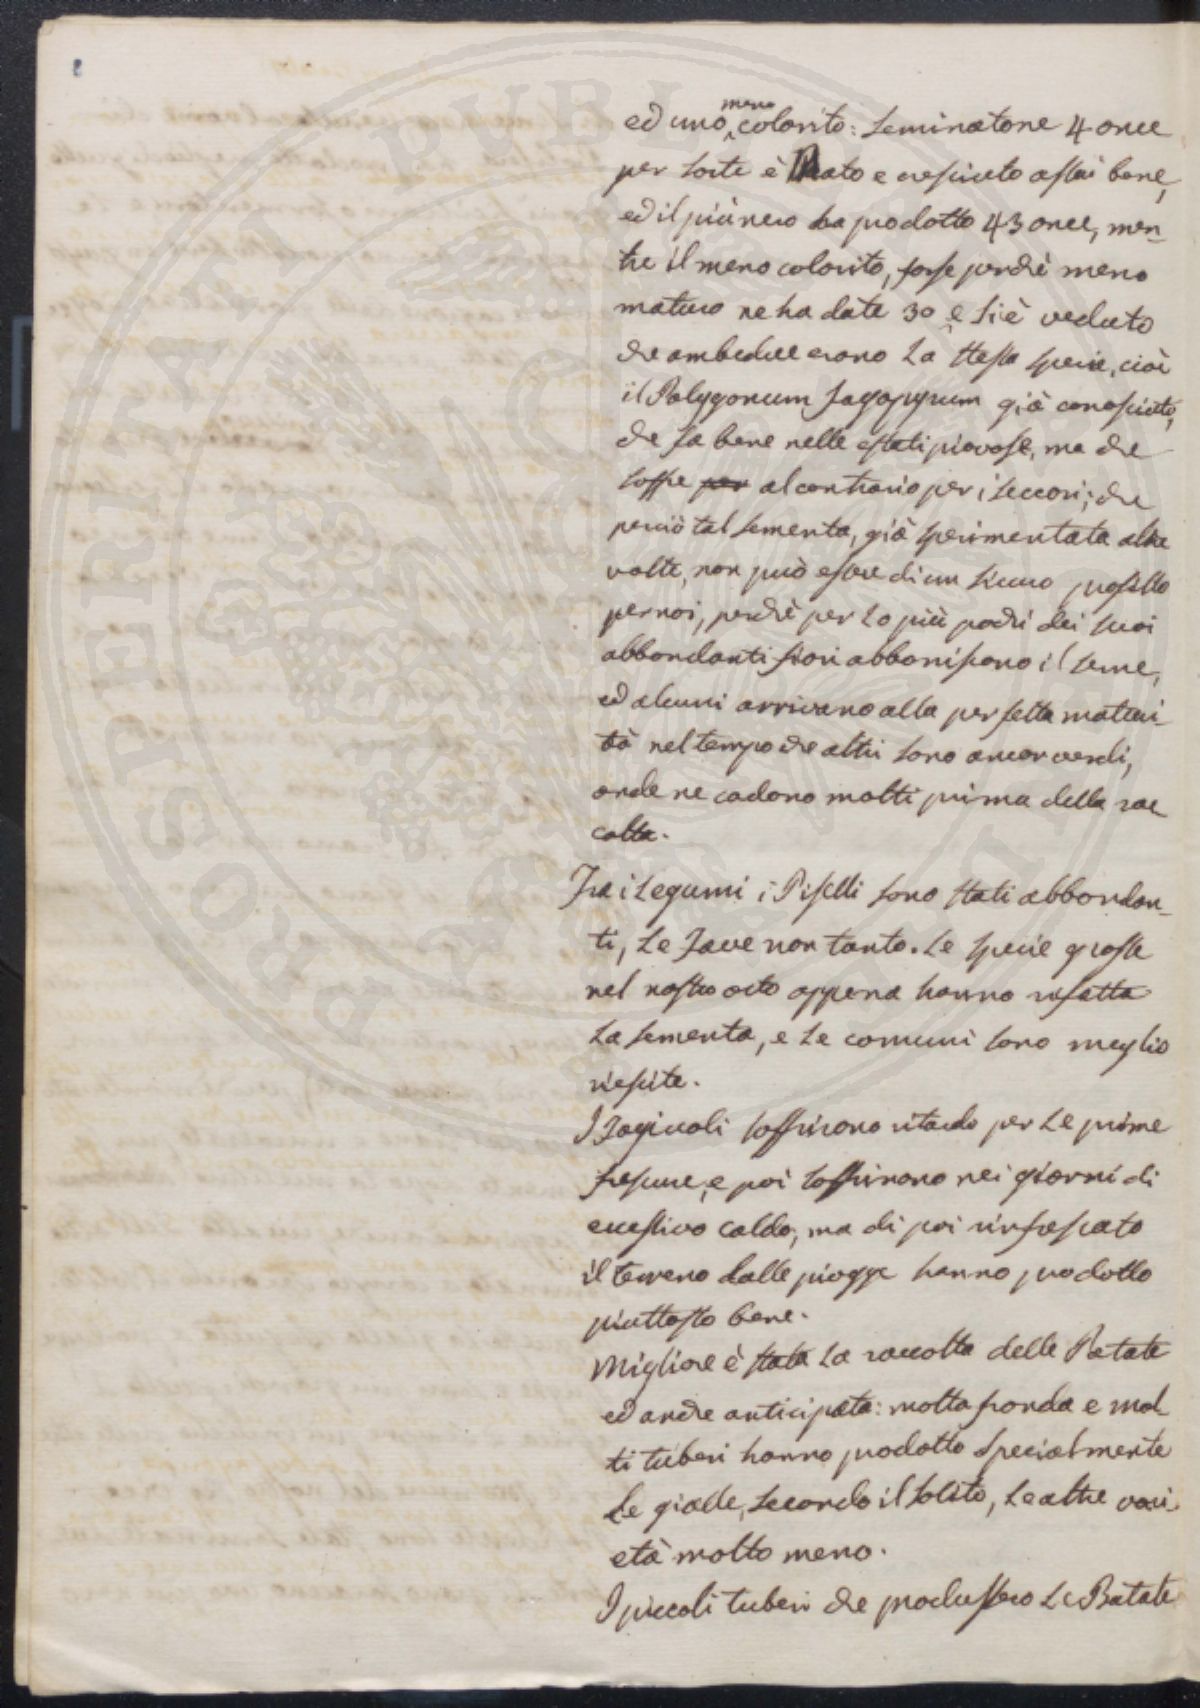 8
ed uno meno colorito: seminatone 4 once
per sorte è nato e cresciuto assai bene,
ed il più nero ha prodotto 43 once, men-
tre il meno colorito, forse perchè meno
maturo ne ha date 30 e si è veduto
che ambedue erano la stessa specie, cioè
il Polygonum fagopyrum già conosciuto,
che fa bene nelle estati piovose, ma che
soffre per al contrario per i seccori; che
perciò tal sementa, già sperimentata altre
volte, non può essere di un sicuro profitto
per noi, perchè per lo più pochi dei suoi
abbondanti fiori abboniscono il seme,
ed alcuni arrivano alla perfetta maturi-
tà nel tempo che altri sono ancor verdi,
onde ne cadono molti prima della rac
colta.
Fra i Legumi i Piselli sono stati abbondan-
ti, le Fave non tanto. Le specie grosse
nel nostro orto appena hanno rifatta
la sementa, e le comuni sono meglio
riescite.
I Fagiuoli soffrirono ritardo per le prime
frescure, e poi soffrirono nei giorni di
eccessivo caldo; ma di poi rinfrescato
il terreno dalle piogge hanno prodotto
piuttosto bene.
Migliore è stata la raccolta delle Patate
ed anche anticipata: molta fronda e mol-
ti tuberi hanno prodotto specialmente
le gialle, secondo il solito, le altre vari-
età molto meno.
I piccoli tuberi che produssero le Batate
PROSPERITATI PUBLICAE